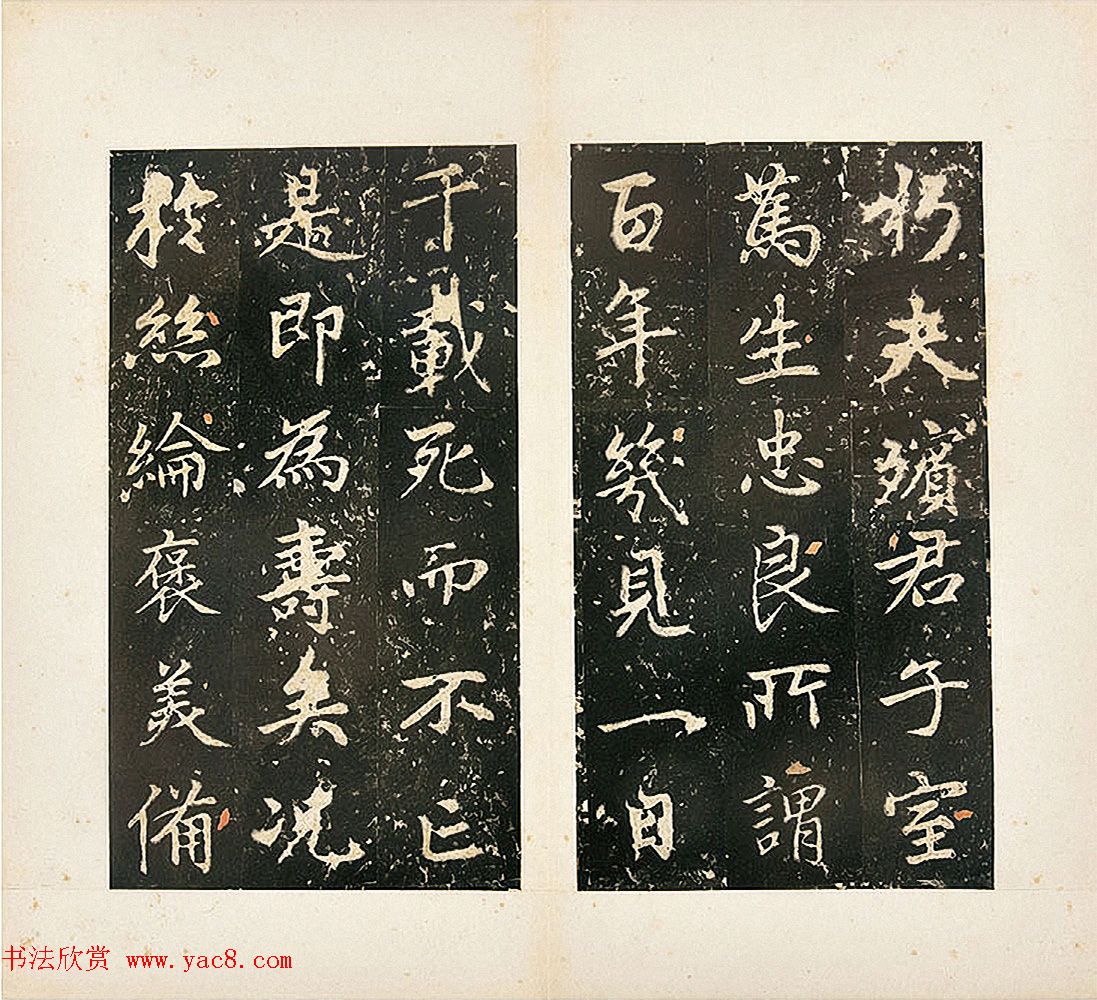 朽夫殯君子室
篤生忠良所謂
百年幾見一日
千載死而不亡
是即為壽矣況
於絲綸褒美備
书法欣赏 www.yac8.com